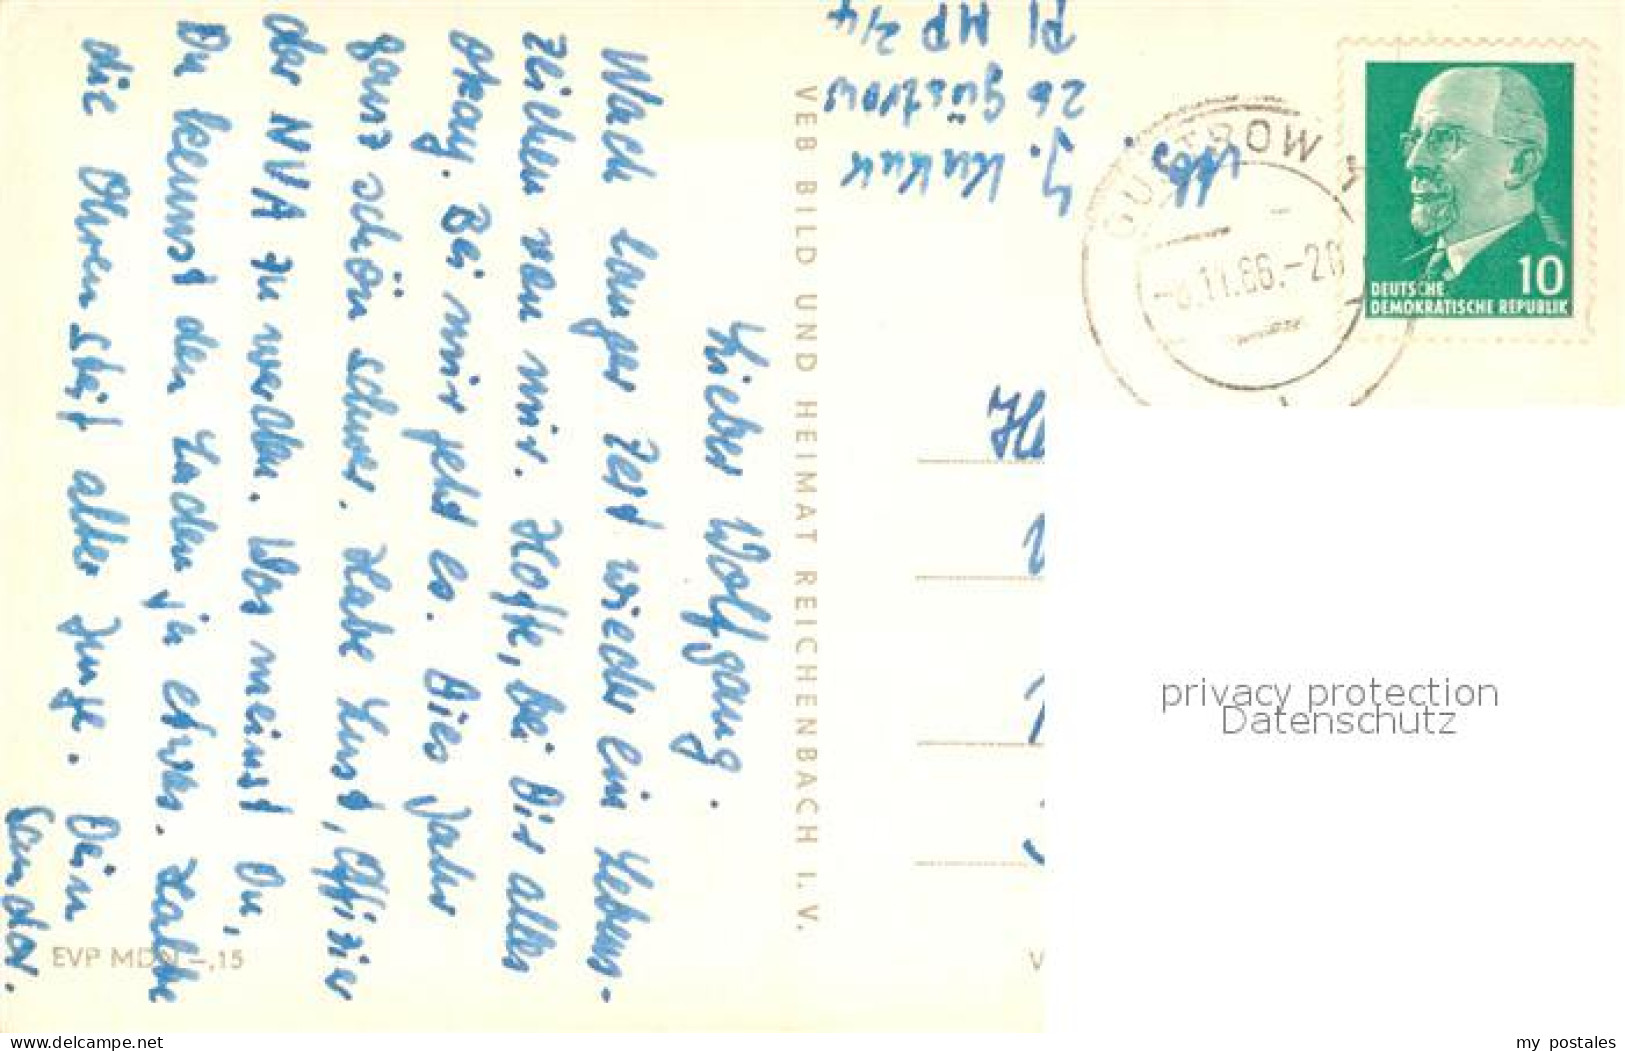 Lieber Wolfgang.
Nach langer Zeit wieder ein Lebens-
zeichen von mir. Hoffe, bei Dir alles
okay. Bei mir geht es. Dies Jahr
ganz schön schwer. Habe Lust, Offizier
der NVA zu werden. Was meinst Du,
Du kennst den Laden ja etwas. Halte
die Ohren steif alter Junge. Dein
Sandor.
VEB BILD UND HEIMAT REICHENBACH I. V.
EVP MDN -,15
J. Kukuk
26 Güstrow
PI MP 2/4
GÜSTROW 1
11.66.-20
10
DEUTSCHE
DEMOKRATISCHE REPUBLIK
privacy protection
Datenschutz
www.ansichtskartenversand.com
my_postales